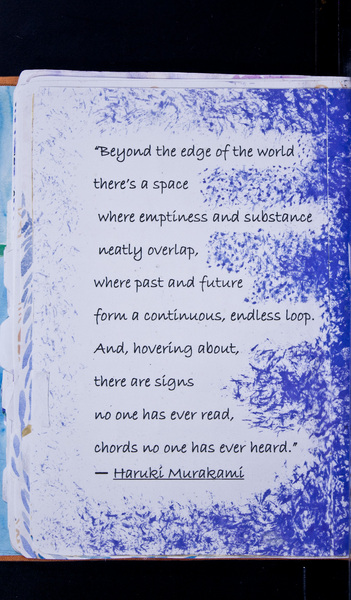 “Beyond the edge of the world
there’s a space
where emptiness and substance
neatly overlap,
where past and future
form a continuous, endless loop.
And, hovering about,
there are signs
no one has ever read,
chords no one has ever heard.”
― Haruki Murakami